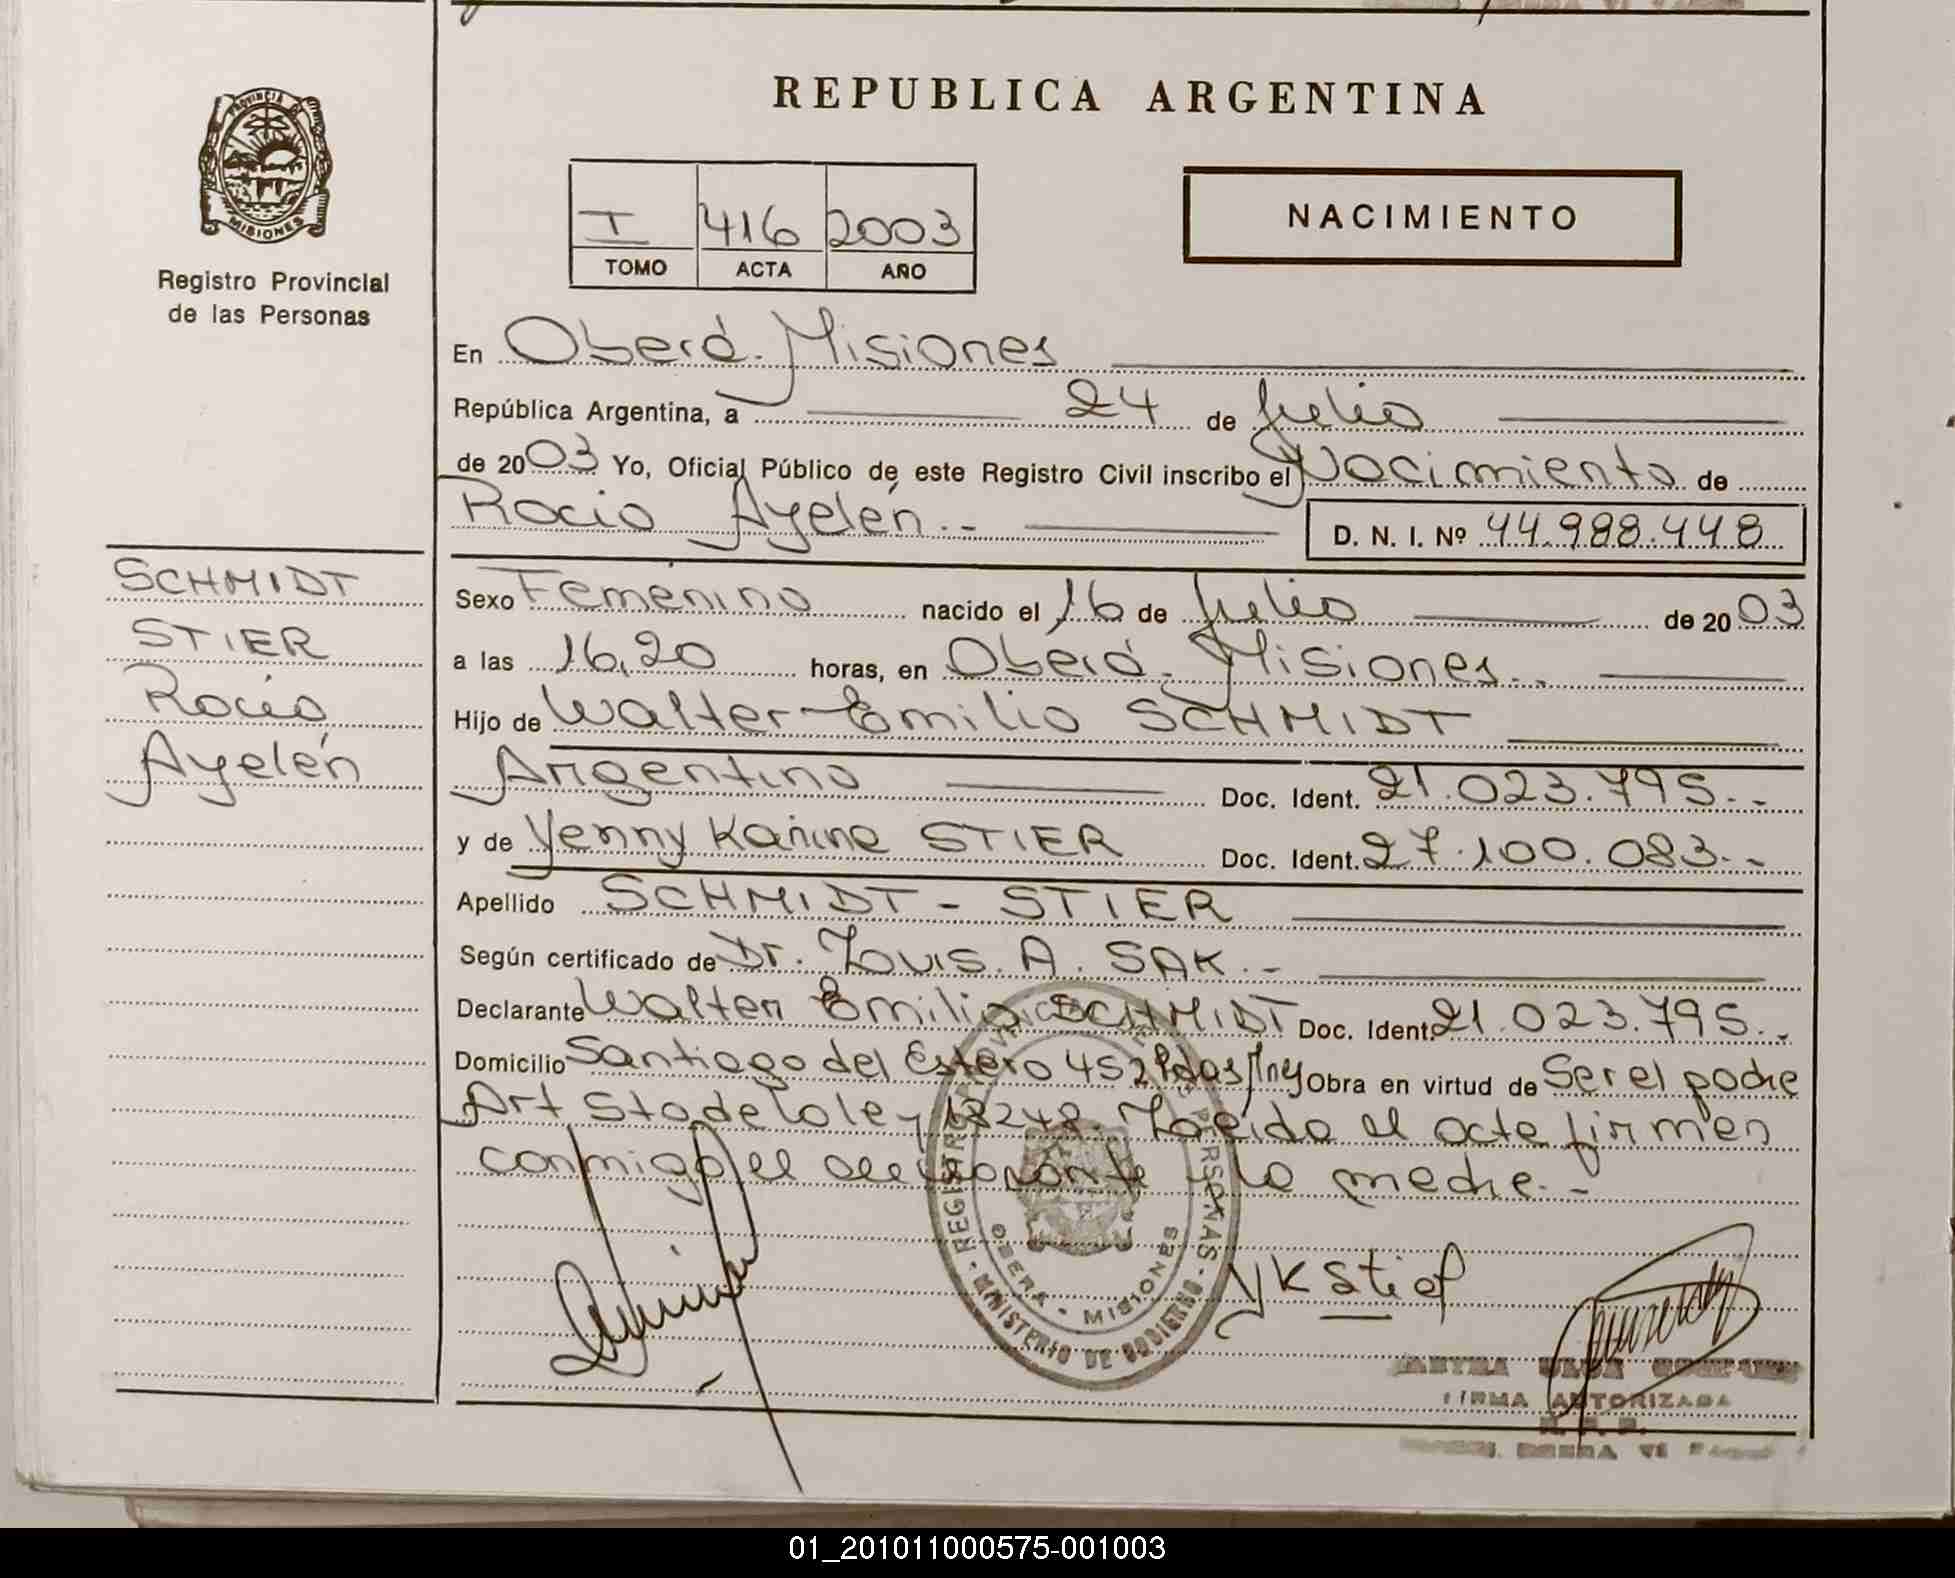 REPUBLICA ARGENTINA
PROVINCIA
MISIONES
Registro Provincial
de las Personas
I 416 2003
TOMO ACTA AÑO
NACIMIENTO
En Oberá. Misiones
República Argentina, a 24 de Julio
de 2003 Yo, Oficial Público de este Registro Civil inscribo el Nacimiento de
Rocio Ayelén.-
D. N. I. Nº 44.988.448
SCHMIDT
STIER
Rocio
Ayelén
Sexo Femenino nacido el 16 de Julio de 2003
a las 16,20 horas, en Oberá. Misiones.
Hijo de Walter Emilio SCHMIDT
Argentino Doc. Ident. 21.023.795.-
y de Yenny Karina STIER Doc. Ident. 27.100.083.-
Apellido SCHMIDT - STIER
Según certificado de Dr. Luis. A. SAK.-
Declarante Walter Emilio SCHMIDT Doc. Ident. 21.023.795.
Domicilio Santiago del Estero 452 Pdas/Mnes Obra en virtud de Ser el padre
Art Sto de la ley 18248. Leído el acta firman
conmigo el declarante y la madre.-
REGISTRO PERSONAS
OBERA - MISIONES
MINISTERIO DE GOBIERNO
YK Stief
FIRMA AUTORIZADA
01_201011000575-001003